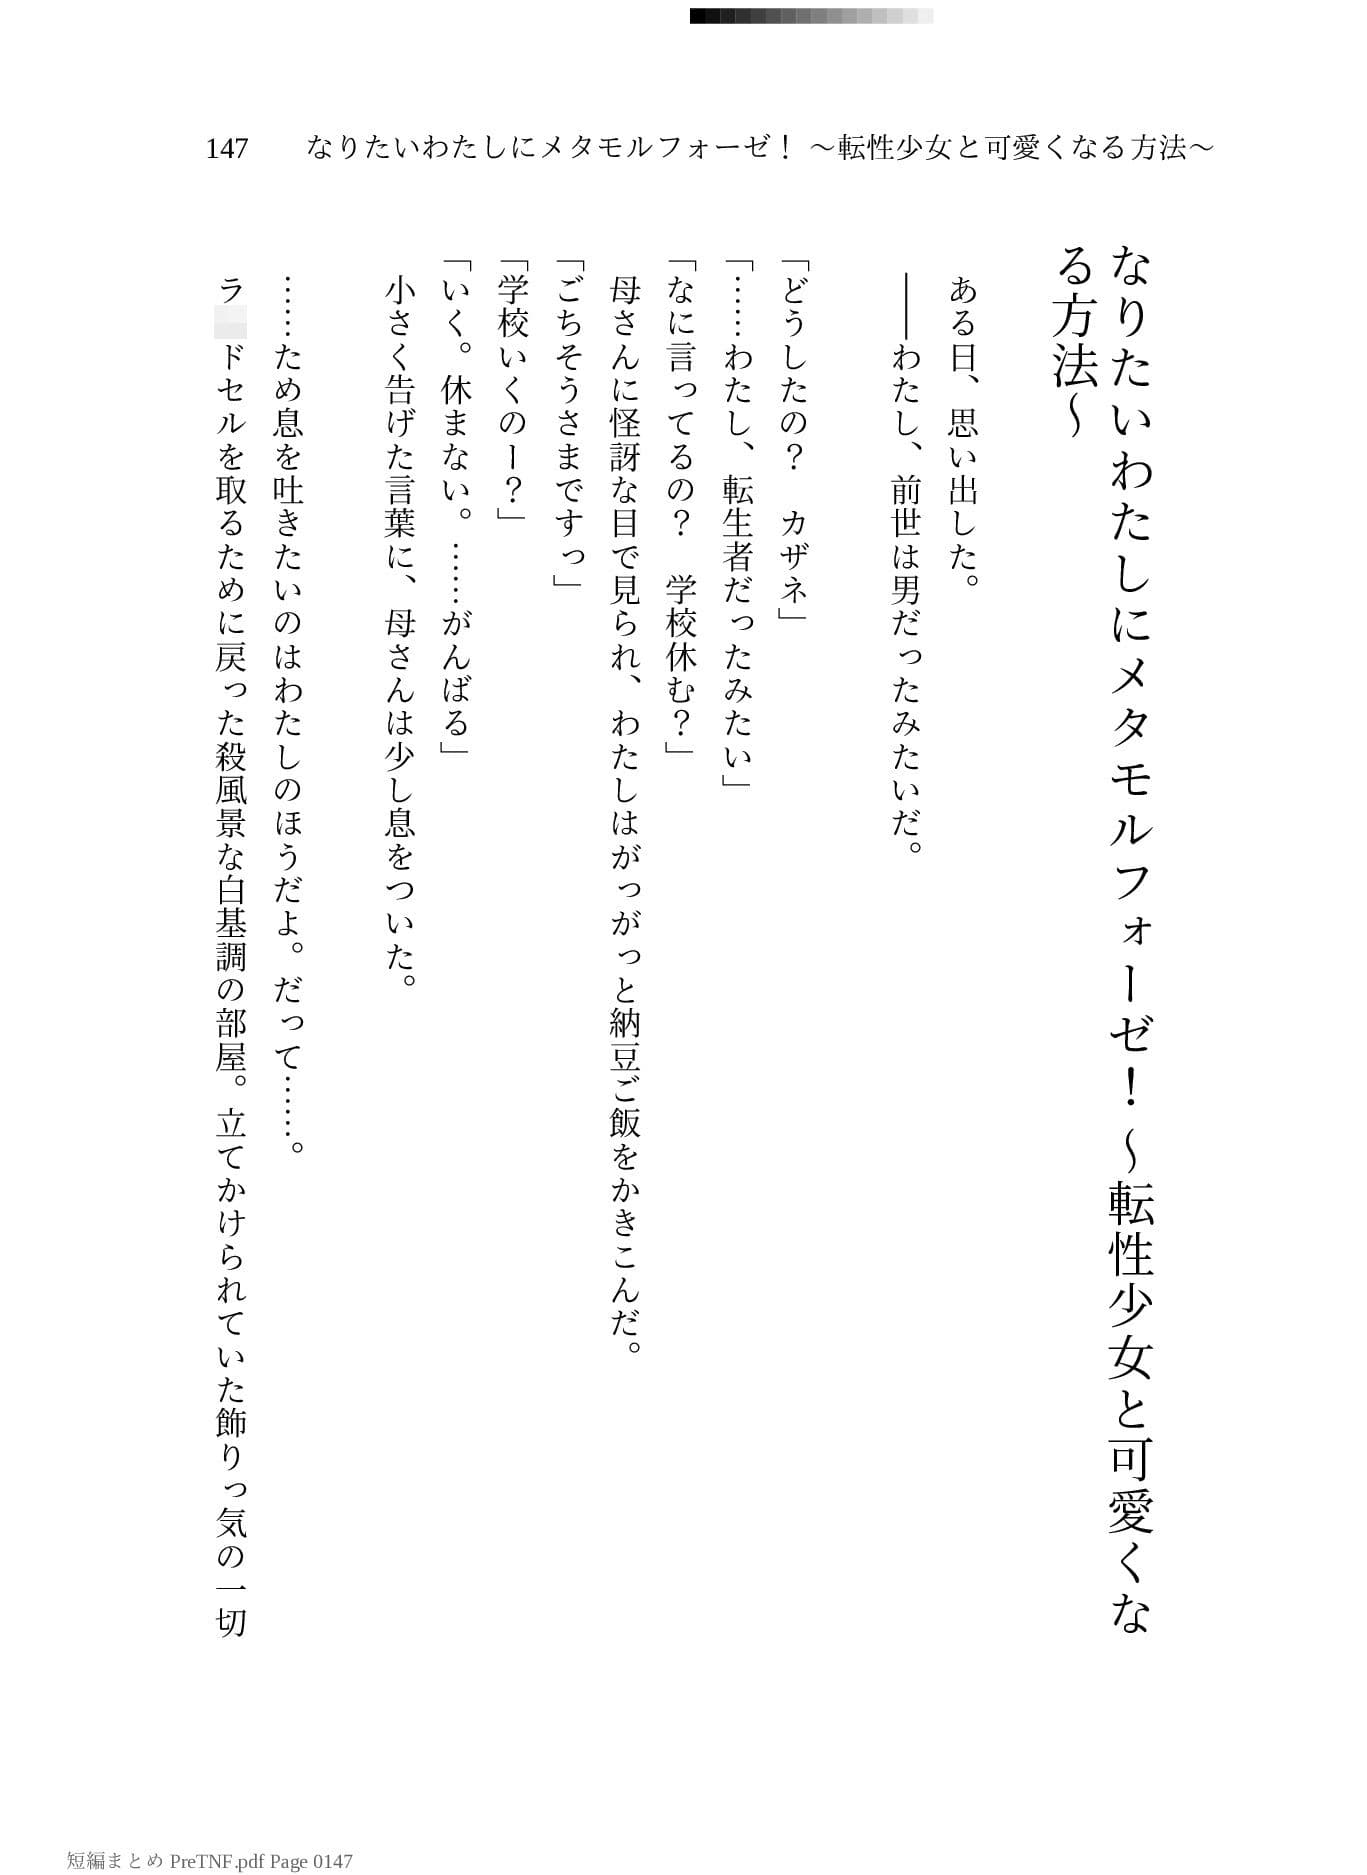 147 なりたいわたしにメタモルフォーゼ！～転性少女と可愛くなる方法～
なりたいわたしにメタモルフォーゼ！～転性少女と可愛くな
る方法～
ある日、思い出した。
――わたし、前世は男だったみたいだ。
「どうしたの？　カザネ」
「……わたし、転生者だったみたい」
「なに言ってるの？　学校休む？」
母さんに怪訝な目で見られ、わたしはがっがっと納豆ご飯をかきこんだ。
「ごちそうさまですっ」
「学校いくのー？」
「いく。休まない。……がんばる」
小さく告げた言葉に、母さんは少し息をついた。
……ため息を吐きたいのはわたしのほうだよ。だって……。
ラ ドセルを取るために戻った殺風景な白基調の部屋。立てかけられていた飾りっ気の一切
短編まとめ PreTNF.pdf Page 0147